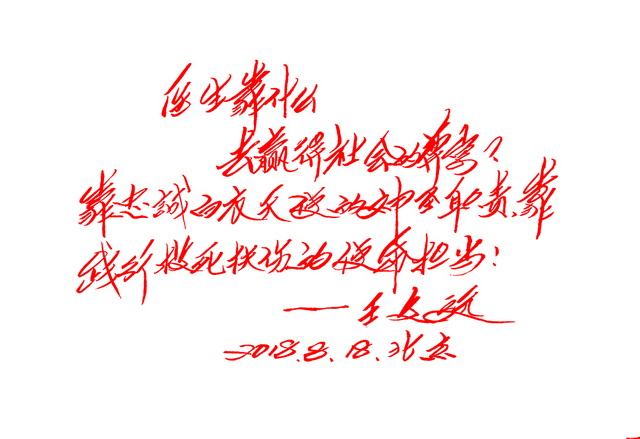 医生靠什么
去赢得社会的尊当？
靠忠诚白衣天使的神圣职责、靠
践行救死扶伤的使命担当！
——王文远
2018.8.18.北京